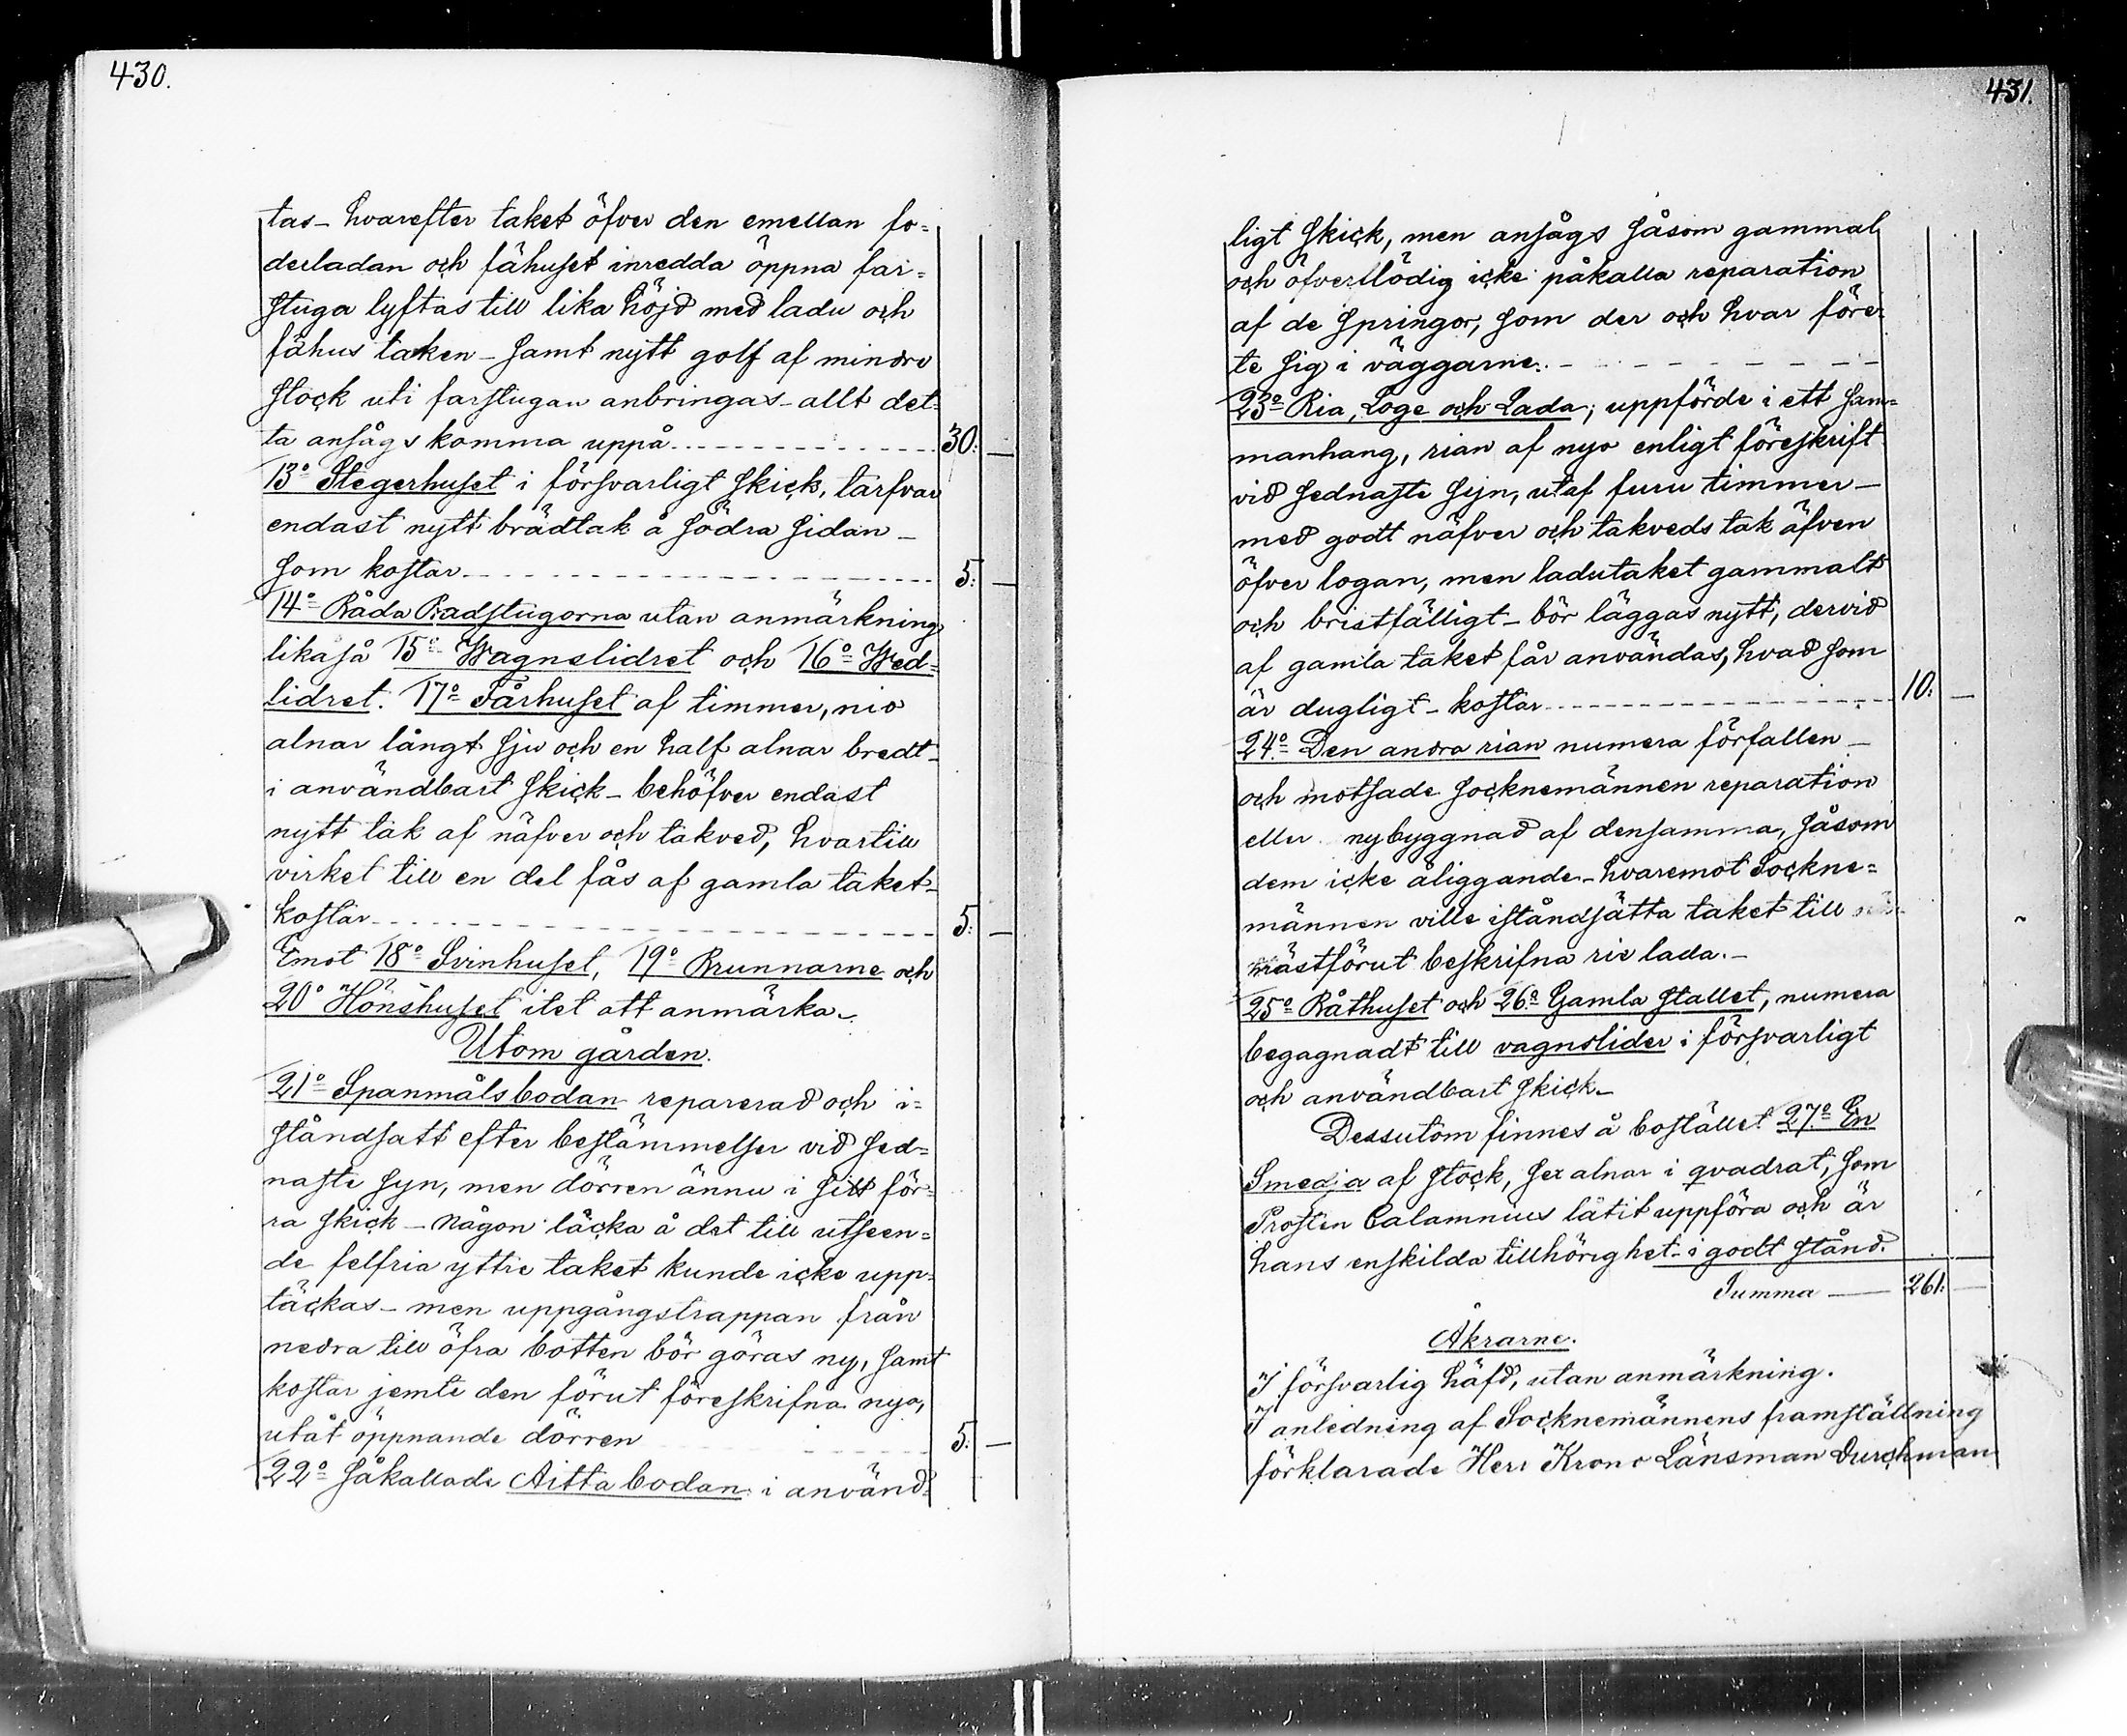 430.
tas – hvarefter taket öfver den emellan fo=
derladan och fähuset inredda öppna far=
stuga lyftas till lika höjd med ladu och
fähus taken – samt nytt golf af mindre
stock uti farstugan anbringas – allt det=
ta ansågs komma uppå 30. —
13o Stegerhuset i försvarligt skick, tarfvar
endast nytt brädtak å södra sidan –
som kostar 5. —
14o Båda Badstugorna utan anmärkning
likaså 15o Wagnslidret och 16o Wed=
lidret. 17o Fårhuset af timmer, nio
alnar långt sju och en half alnar bredt –
i användbart skick – behöfver endast
nytt tak af näfver och takved, hvartill
virket till en del fås af gamla taket –
kostar 5. —
Emot 18o Svinhuset, 19o Brunnarne och
20o Hönshuset itet att anmärka –
Utom gården.
21o Spanmålsbodan reparerad och i=
ståndsatt efter bestämmelser vid sed=
naste syn, men dörren ännu i sitt för=
ra skick – någon läcka å det till utseen=
de felfria yttre taket kunde icke upp=
täckas – men uppgångstrappan från
nedra till öfra botten bör göras ny, samt
kostar jemte den förut föreskrifna nya,
utåt öppnande dörren 5. —
22o såkallade Aitta bodan i använd=
431.
ligt skick, men ansågs såsom gammal
och öfverflödig icke påkalla reparation
af de springor, som der och hvar före=
te sig i väggarne. –
23o Ria, Loge och Lada; uppförde i ett sam=
manhang, rian af nyo enligt föreskrift
vid sednaste syn, utaf furu timmer –
med godt näfver och takveds tak äfven
öfver logan, men ladutaket gammalt
och bristfälligt – bör läggas nytt, dervid
af gamla taket får användas, hvad som
är dugligt – kostar 10. —
24o Den andra rian numera förfallen –
och motsade socknemännen reparation
eller nybyggnad af densamma, såsom
dem icke åliggande – hvaremot Sockne=
männen ville iståndsätta taket till
nästförut beskrifna rie lada. –
25o Båthuset och 26o Gamla stallet, numera
begagnadt till vagnslider i försvarligt
och användbart skick –
Dessutom finnes å bostället 27o En
Smedja af stock, sex alnar i qvadrat, som
Prosten Calamnius låtit uppföra och är
hans enskilda tillhörighet – i godt stånd.
Summa — 261. —
Åkrarne.
I försvarlig häfd, utan anmärkning.
I anledning af Socknemännens framställning
förklarade Herr Krono Länsman Durchman